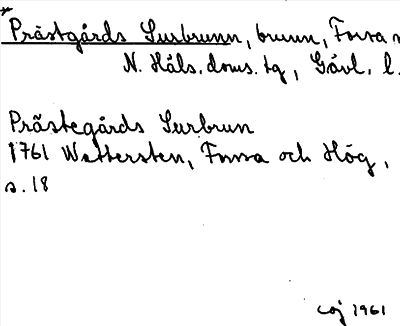 * Prästgårds Surbrunn, brunn, Forsa
N. Häls. doms. tg, Gävl. l.
Prästegårds Surbrun
1761 Wettersten, Forssa och Hög,
s. 18
1961